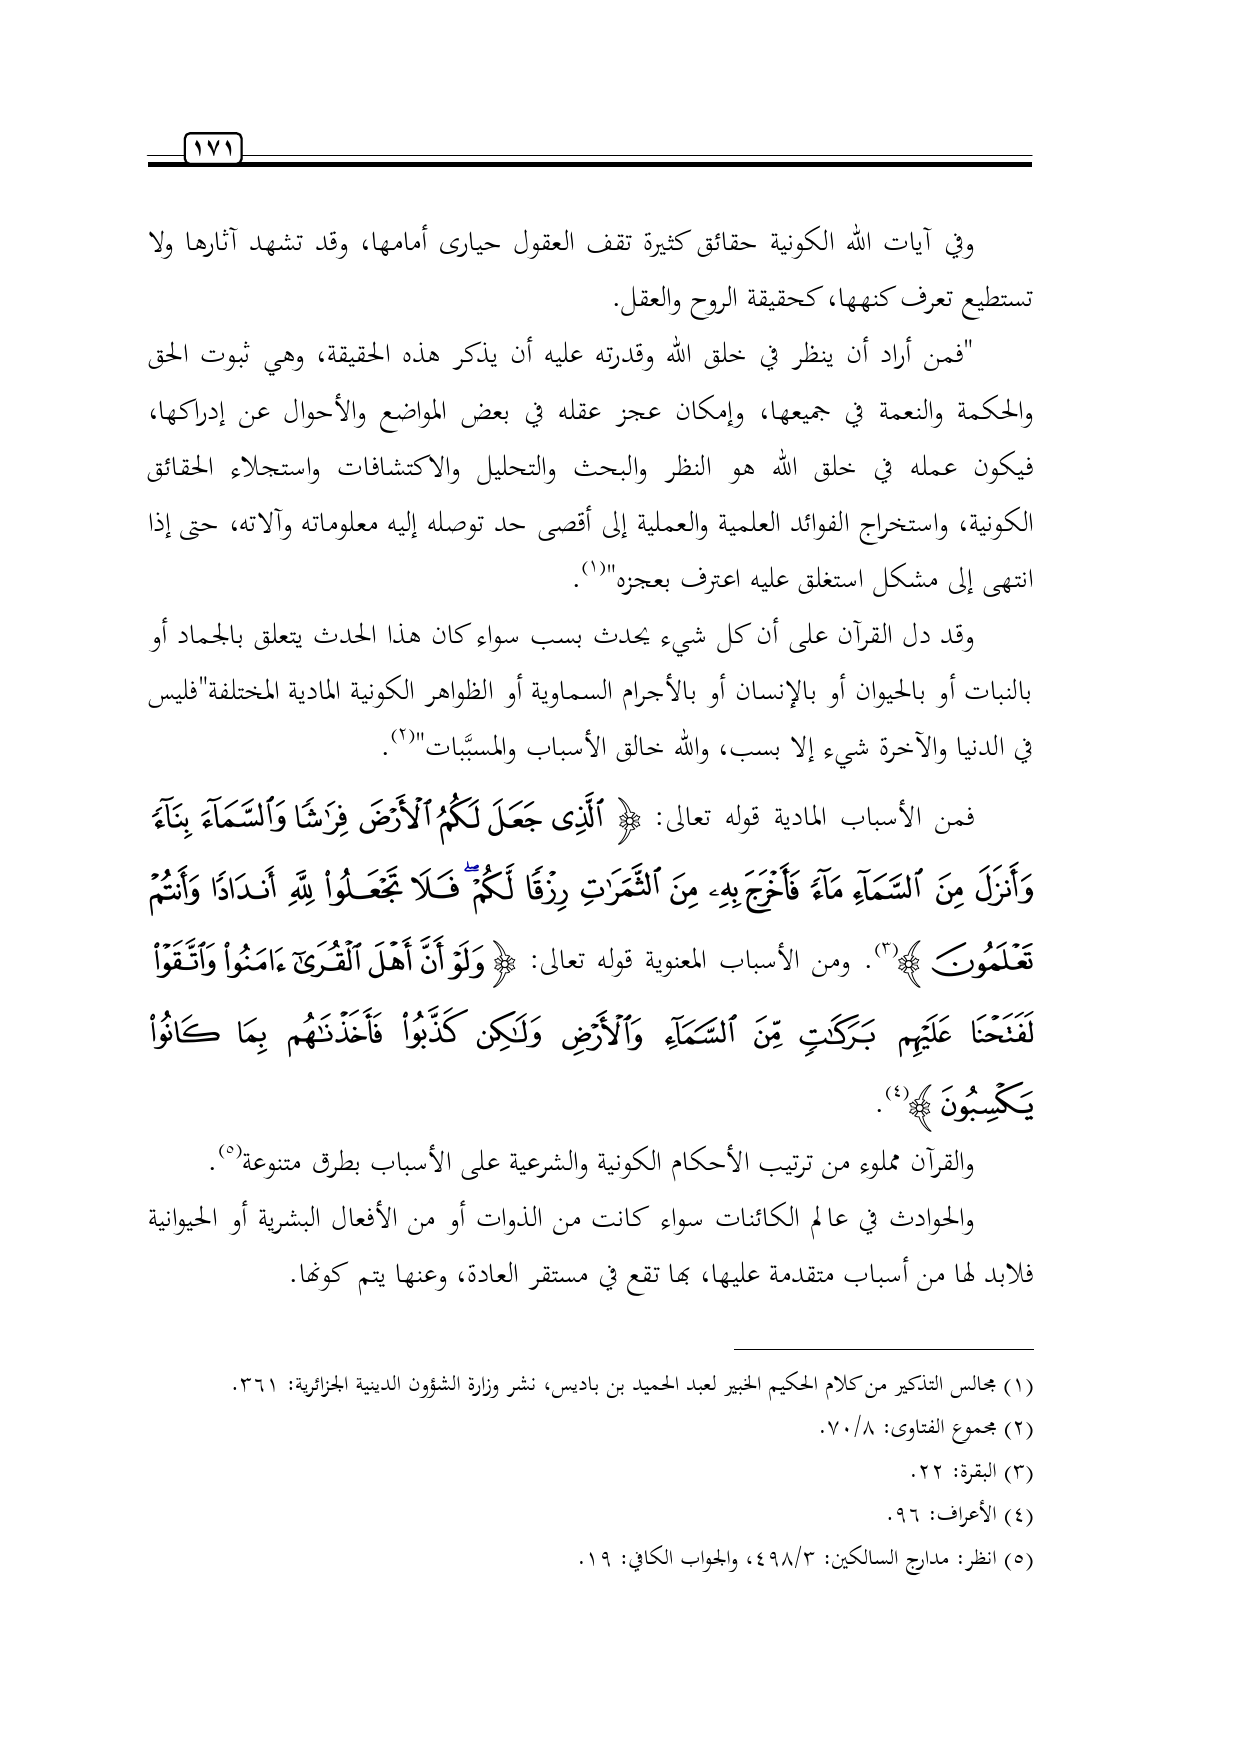 ١٧١
وفي آيات الله الكونية حقائق كثيرة تقف العقول حيارى أمامها، وقد تشهد آثارها ولا
تستطيع تعرف كنهها، كحقيقة الروح والعقل.
"فمن أراد أن ينظر في خلق الله وقدرته عليه أن يذكر هذه الحقيقة، وهي ثبوت الحق
والحكمة والنعمة في جميعها، وإمكان عجز عقله في بعض المواضع والأحوال عن إدراكها،
فيكون عمله في خلق الله هو النظر والبحث والتحليل والاكتشافات واستجلاء الحقائق
الكونية، واستخراج الفوائد العلمية والعملية إلى أقصى حد توصله إليه معلوماته وآلاته، حتى إذا
انتهى إلى مشكل استغلق عليه اعترف بعجزه"(١).
وقد دل القرآن على أن كل شيء يحدث بسب سواء كان هذا الحدث يتعلق بالجماد أو
بالنبات أو بالحيوان أو بالإنسان أو بالأجرام السماوية أو الظواهر الكونية المادية المختلفة"فليس
في الدنيا والآخرة شيء إلا بسب، والله خالق الأسباب والمسبَّبات"(٢).
فمن الأسباب المادية قوله تعالى: ﴿ ٱلَّذِى جَعَلَ لَكُمُ ٱلْأَرْضَ فِرَٰشًا وَٱلسَّمَآءَ بِنَآءً
وَأَنزَلَ مِنَ ٱلسَّمَآءِ مَآءً فَأَخْرَجَ بِهِۦ مِنَ ٱلثَّمَرَٰتِ رِزْقًا لَّكُمْ ۖ فَلَا تَجْعَلُوا۟ لِلَّهِ أَندَادًا وَأَنتُمْ
تَعْلَمُونَ ﴾(٣). ومن الأسباب المعنوية قوله تعالى: ﴿ وَلَوْ أَنَّ أَهْلَ ٱلْقُرَىٰٓ ءَامَنُوا۟ وَٱتَّقَوْا۟
لَفَتَحْنَا عَلَيْهِم بَرَكَٰتٍ مِّنَ ٱلسَّمَآءِ وَٱلْأَرْضِ وَلَٰكِن كَذَّبُوا۟ فَأَخَذْنَٰهُم بِمَا كَانُوا۟
يَكْسِبُونَ ﴾(٤).
والقرآن مملوء من ترتيب الأحكام الكونية والشرعية على الأسباب بطرق متنوعة(٥).
والحوادث في عالم الكائنات سواء كانت من الذوات أو من الأفعال البشرية أو الحيوانية
فلابد لها من أسباب متقدمة عليها، بها تقع في مستقر العادة، وعنها يتم كونها.
(١) مجالس التذكير من كلام الحكيم الخبير لعبد الحميد بن باديس، نشر وزارة الشؤون الدينية الجزائرية: ٣٦١.
(٢) مجموع الفتاوى: ٧٠/٨.
(٣) البقرة: ٢٢.
(٤) الأعراف: ٩٦.
(٥) انظر: مدارج السالكين: ٤٩٨/٣، والجواب الكافي: ١٩.